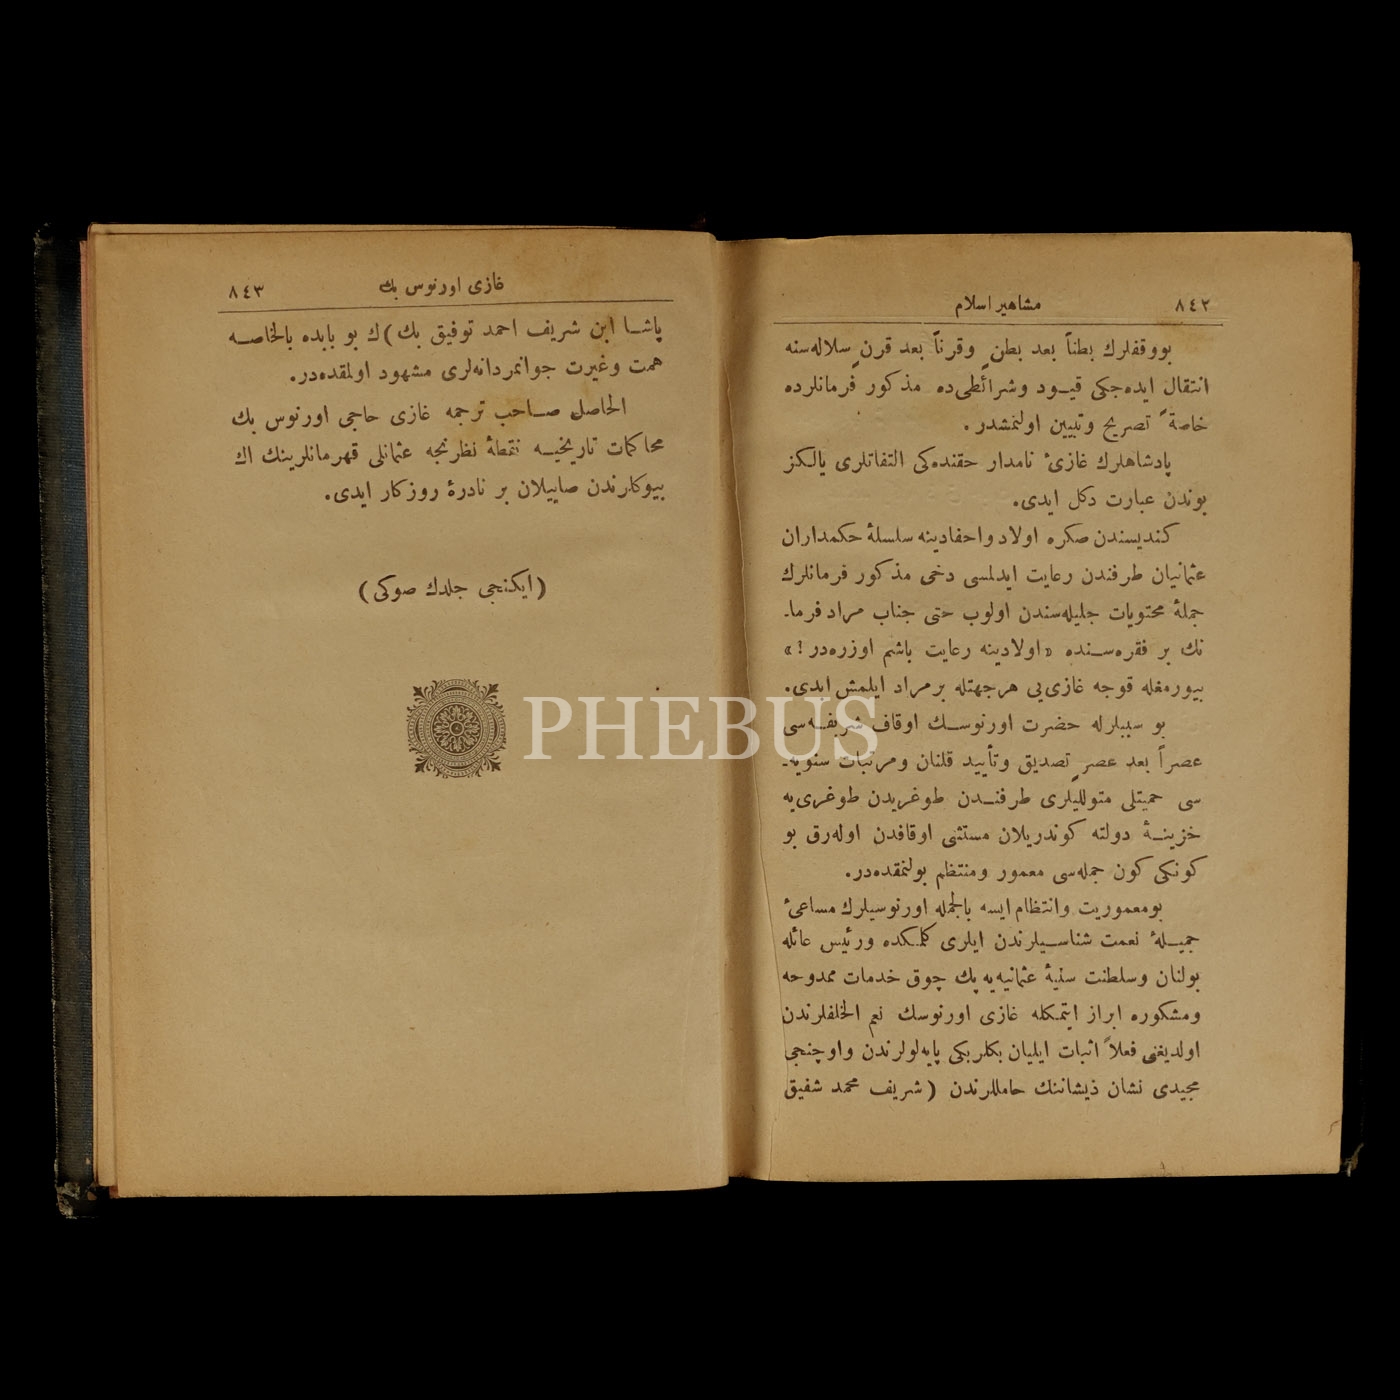 ٨٤٢
مشاهير اسلام
بووقفلرك بطناً بعد بطنٍ وقرناً بعد قرنٍ سلاله‌سنه
انتقال ايده‌جكى قيود وشرائطى‌ده مذكور فرمانلرده
خاصةً تصريح وتبيين اولنمشدر.
پادشاهلرك غازئ نامدار حقنده‌كى التفاتلرى يالكز
بوندن عبارت دكل ايدى.
كنديسندن صكره اولاد واحفادينه سلسلهٔ حكمداران
عثمانيان طرفندن رعايت ايدلمسى دخى مذكور فرمانلرك
جملهٔ محتويات جليله‌سندن اولوب حتى جناب مراد فرما-
نك بر فقره‌سنده «اولادينه رعايت باشم اوزره‌در!»
بيورمغله قوجه غازى‌يى هرجهتله برمراد ايلمش ايدى.
بو سببلرله حضرت اورنوسك اوقاف شريفه‌سى
عصراً بعد عصرٍ تصديق وتأييد قلنان ومرتبات سنويه-
سى حميتلى متولليلرى طرفندن طوغريدن طوغرى‌يه
خزينهٔ دولته كوندريلان مستثنى اوقافدن اوله‌رق بو
كونكى كون جمله‌سى معمور ومنتظم بولنمقده‌در.
بومعموريت وانتظام ايسه بالجمله اورنوسيلرك مساعئ
جميلهٔ نعمت شناسيلرندن ايلرى كلمكده ورئيس عائله
بولنان وسلطنت سنيهٔ عثمانيه‌يه پك چوق خدمات ممدوحه
ومشكوره ابراز ايتمكله غازى اورنوسك نعم الخلفلرندن
اولديغنى فعلاً اثبات ايليان بكلربكى پايه‌لولرندن واوچنجى
مجيدى نشان ذيشاننك حاملرندن (شريف محمد شفيق
غازى اورنوس بك
٨٤٣
پاشا ابن شريف احمد توفيق بك)ك بو بابده بالخاصه
همت وغيرت جوانمردانه‌لرى مشهود اولمقده‌در.
الحاصل صاحب ترجمه غازى حاجى اورنوس بك
محاكمات تاريخيه نقطهٔ نظرنجه عثمانلى قهرمانلرينك اك
بيوكلرندن صاييلان بر نادرهٔ روزكار ايدى.
(ايكنجى جلدك صوكى)
PHEBUS